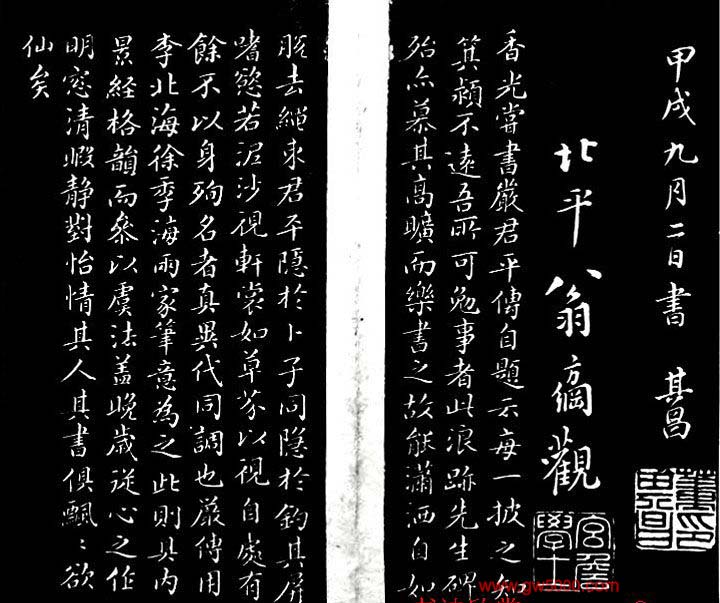 甲戌九月二日書 其昌
董其昌印
宮詹學士
北平翁方綱觀
香光嘗書嚴君平傳自題云每一披之知
箕潁不遠吾所可勉事者此浪跡先生碑
殆亦慕其高曠而樂書之故能瀟洒自如
脫去繩束君平隱於卜子同隱於釣其屏
嗜慾若泥沙視軒裳如草芥以視自處有
餘不以身殉名者真異代同調也嚴傳用
李北海徐季海兩家筆意為之此則具內
景經格韻而參以虞法蓋晚歲從心之作
明窓清暇靜對怡情其人其書俱飄〻欲
仙矣